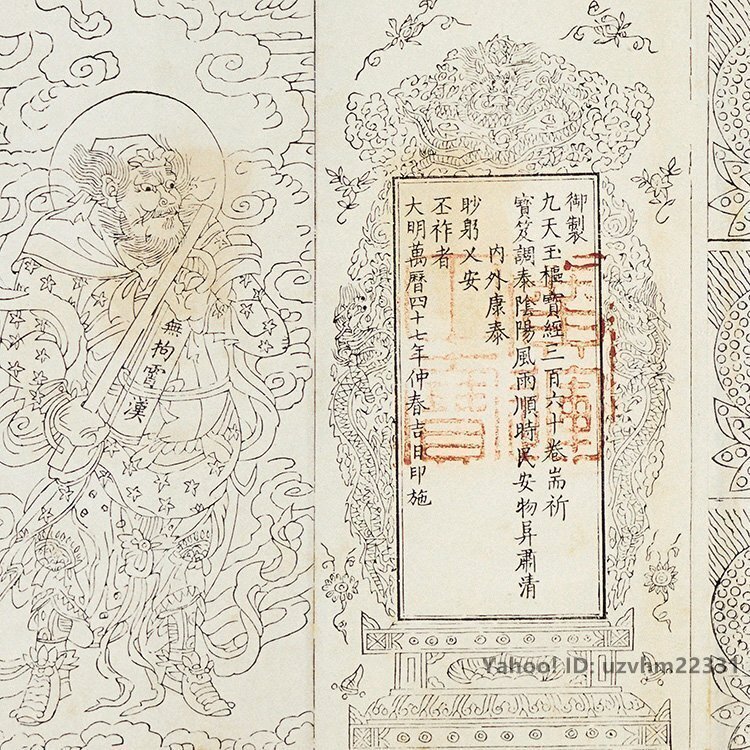 御製
九天玉樞寶經三百六十卷耑祈
寶笈調泰陰陽風雨順時民安物阜肅清
內外康泰
眇躬乂安
丕祚者
大明萬曆四十七年仲春吉日印施
無拘霄漢
Yahoo! ID: uzvhm22331